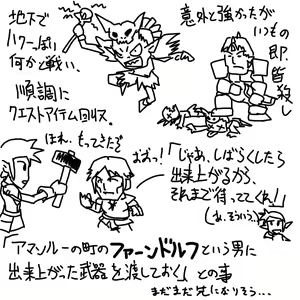 地下で
パワーっぽい
何かと戦い、
順調に
クエストアイテム回収。
意外と強かったが
いつもの
即・皆殺し
ほれ、もってきたぞ
おおっ!「じゃあ、しばらくしたら
出来上がるから、
それまで待っててくれ」
(あ、そういう…)
「アマンルーの町のファーンドルフという男に
出来上がった武器を渡しておく」との事
まだまだ先になりそう…